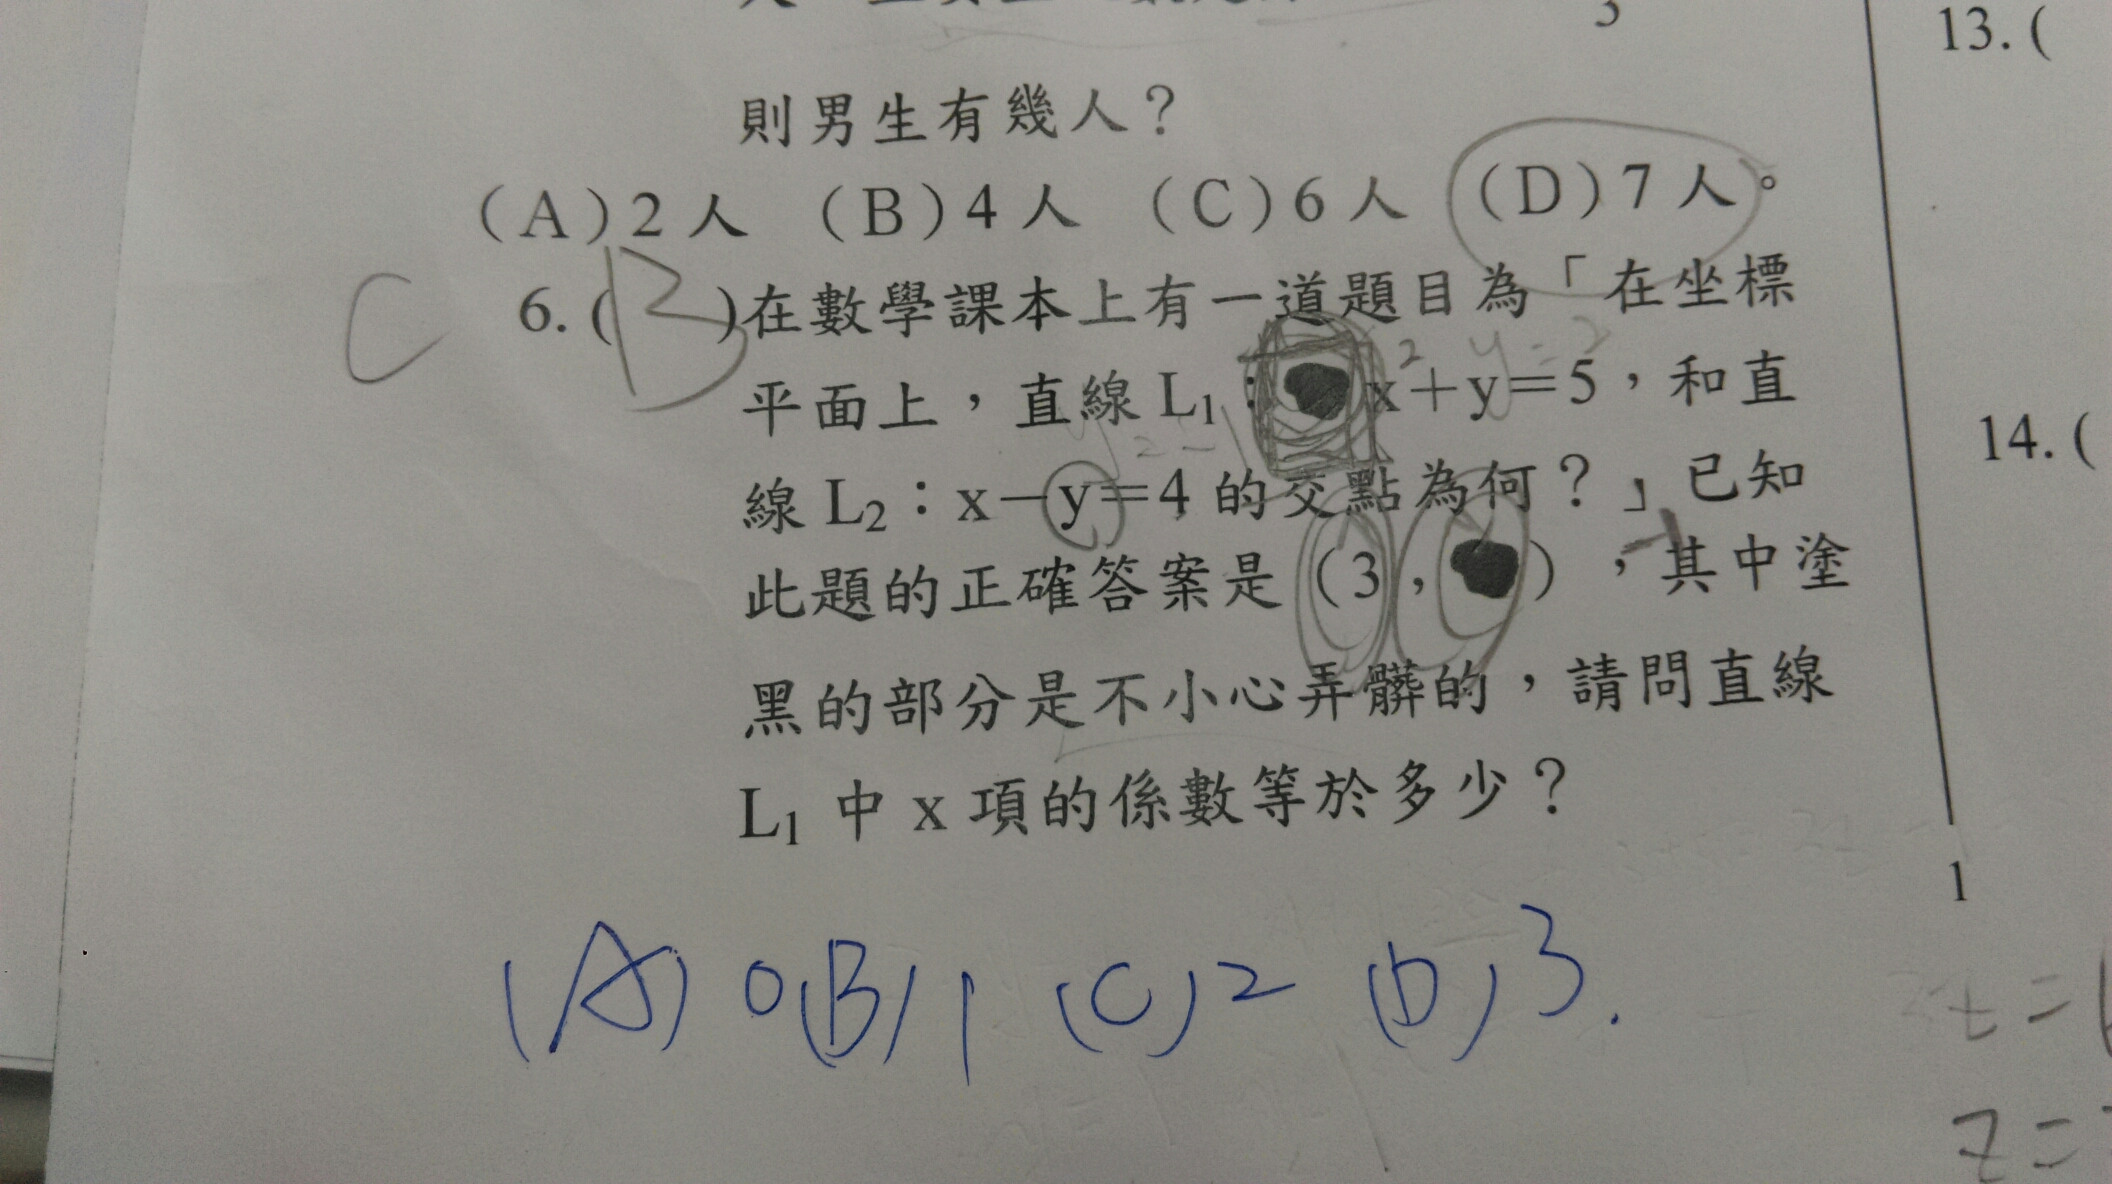 3
13. (
則男生有幾人？
(A) 2 人 (B) 4 人 (C) 6 人 (D) 7 人。
C 6. ( B )在數學課本上有一道題目為「在坐標
平面上，直線 L₁：x＋y＝5，和直
14. (
線 L₂：x－y＝4 的交點為何？」已知
此題的正確答案是（3，），其中塗
黑的部分是不小心弄髒的，請問直線
L₁ 中 x 項的係數等於多少？
1
(A) 0 (B) 1 (C) 2 (D) 3.
z=